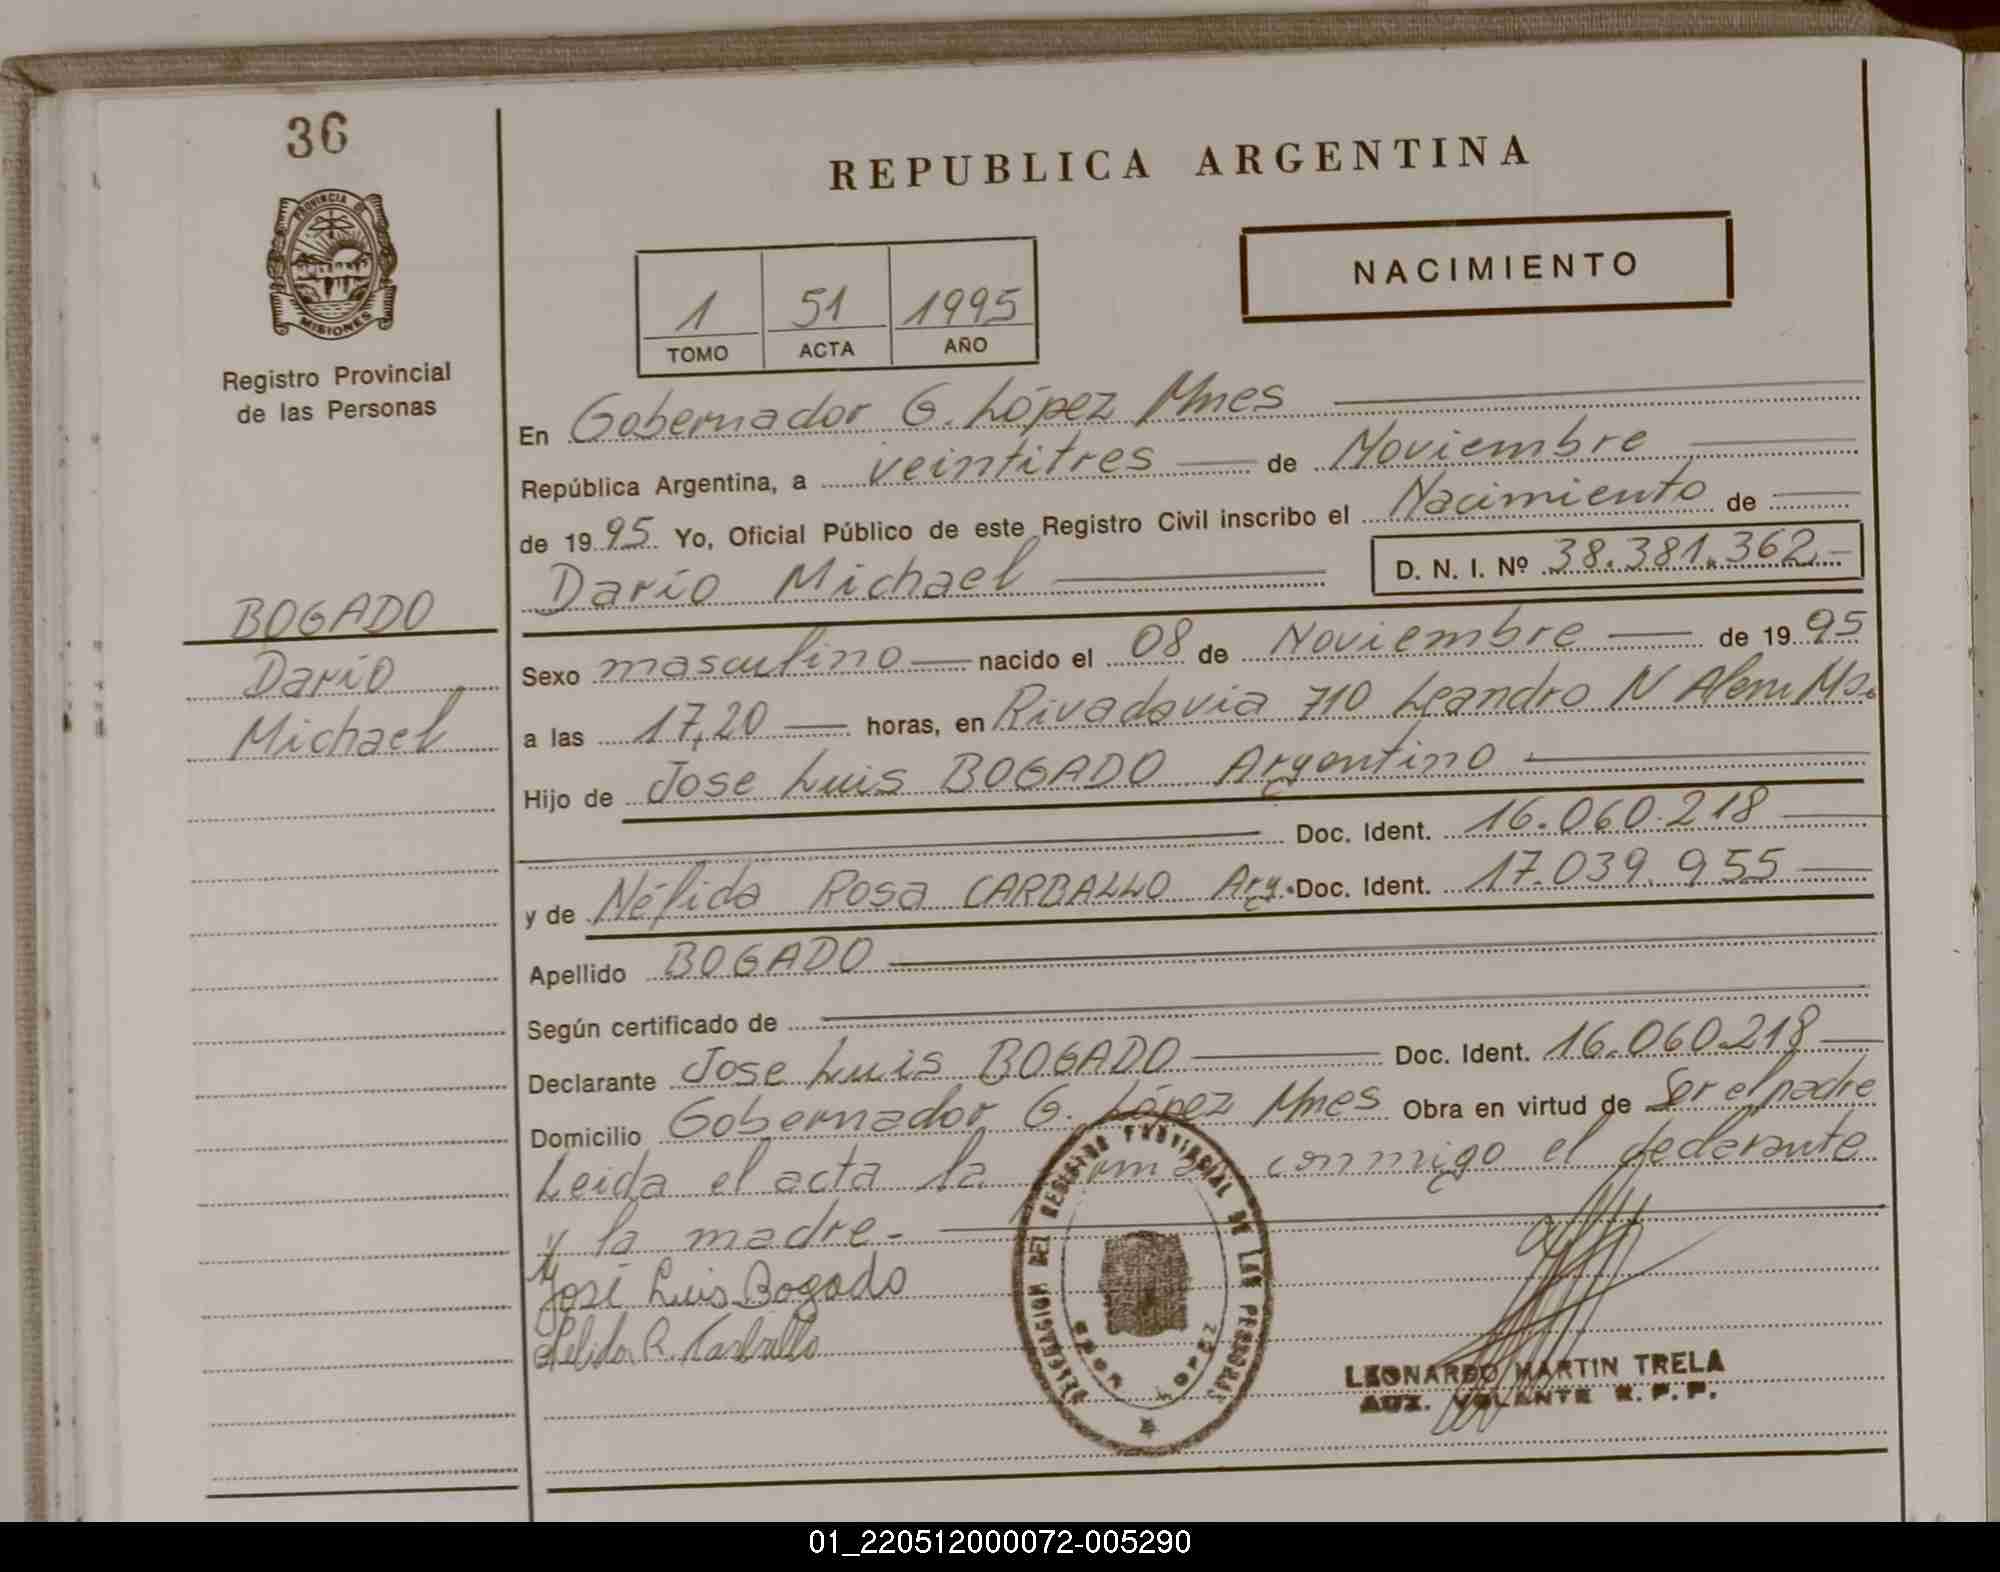 36
PROVINCIA DE
MISIONES
Registro Provincial
de las Personas
BOGADO
Darío
Michael
REPUBLICA ARGENTINA
NACIMIENTO
1 51 1995
TOMO ACTA AÑO
En Gobernador G. López Mnes
República Argentina, a veintitres de Noviembre
de 1995 Yo, Oficial Público de este Registro Civil inscribo el Nacimiento de
Darío Michael D. N. I. Nº 38.381.362.-
Sexo masculino nacido el 08 de Noviembre de 1995
a las 17,20 horas, en Rivadavia 710 Leandro N Alem Ms.
Hijo de Jose Luis BOGADO Argentino
Doc. Ident. 16.060.218
y de Nélida Rosa CARBALLO Arg. Doc. Ident. 17.039.955
Apellido BOGADO
Según certificado de
Declarante Jose Luis BOGADO Doc. Ident. 16.060.218
Domicilio Gobernador G. López Mnes Obra en virtud de Ser el padre
Leida el acta la conmigo el declarante
y la madre.-
José Luis Bogado
Nelida R. Carballo
DELEGACION DEL REGISTRO PROVINCIAL DE LAS PERSONAS
LEONARDO MARTIN TRELA
AUX. VOLANTE R. P. P.
01_220512000072-005290